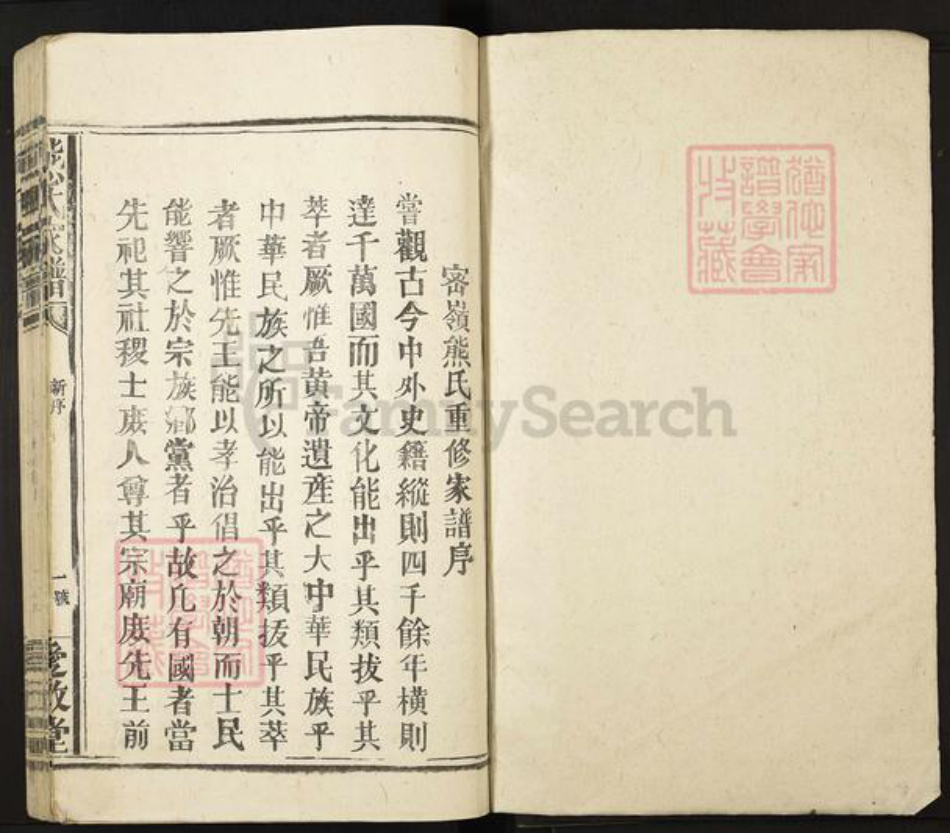 密嶺熊氏重修家譜序
嘗觀古今中外史籍縱則四千餘年橫則
達千萬國而其文化能出乎其類拔乎其
萃者厥惟吾黃帝遺產之大中華民族乎
中華民族之所以能出乎其類拔乎其萃
者厥惟先王能以孝治倡之於朝而士民
能響之於宗族鄉黨者乎故凢有國者當
先祀其社稷士庻人尊其宗廟庻先王前
熊氏家譜
新序
一號
愛敬堂
譜學會
收藏
FamilySearch